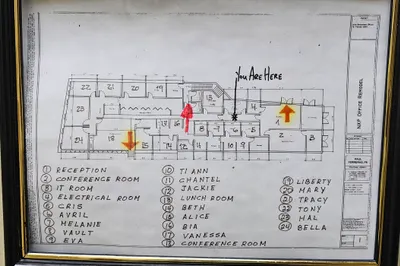 You Are Here
22
21
20
19
23
24
18
17
16
15
14
13
12
11
10
9
8
7
6
5
4
3
2
1
NKF OFFICE REMODEL
① RECEPTION
② CONFERENCE ROOM
③ IT ROOM
④ ELECTRICAL ROOM
⑤ CRIS
⑥ AVRIL
⑦ MELANIE
⑧ VAULT
⑨ EVA
⑩ TI ANN
⑪ CHANTEL
⑫ JACKIE
⑬ LUNCH ROOM
⑭ BETH
⑮ ALICE
⑯ BIA
⑰ VANESSA
⑱ CONFERENCE ROOM
⑲ LIBERTY
⑳ MARY
㉑ TRACY
㉒ TONY
㉓ HAL
㉔ BELLA
1